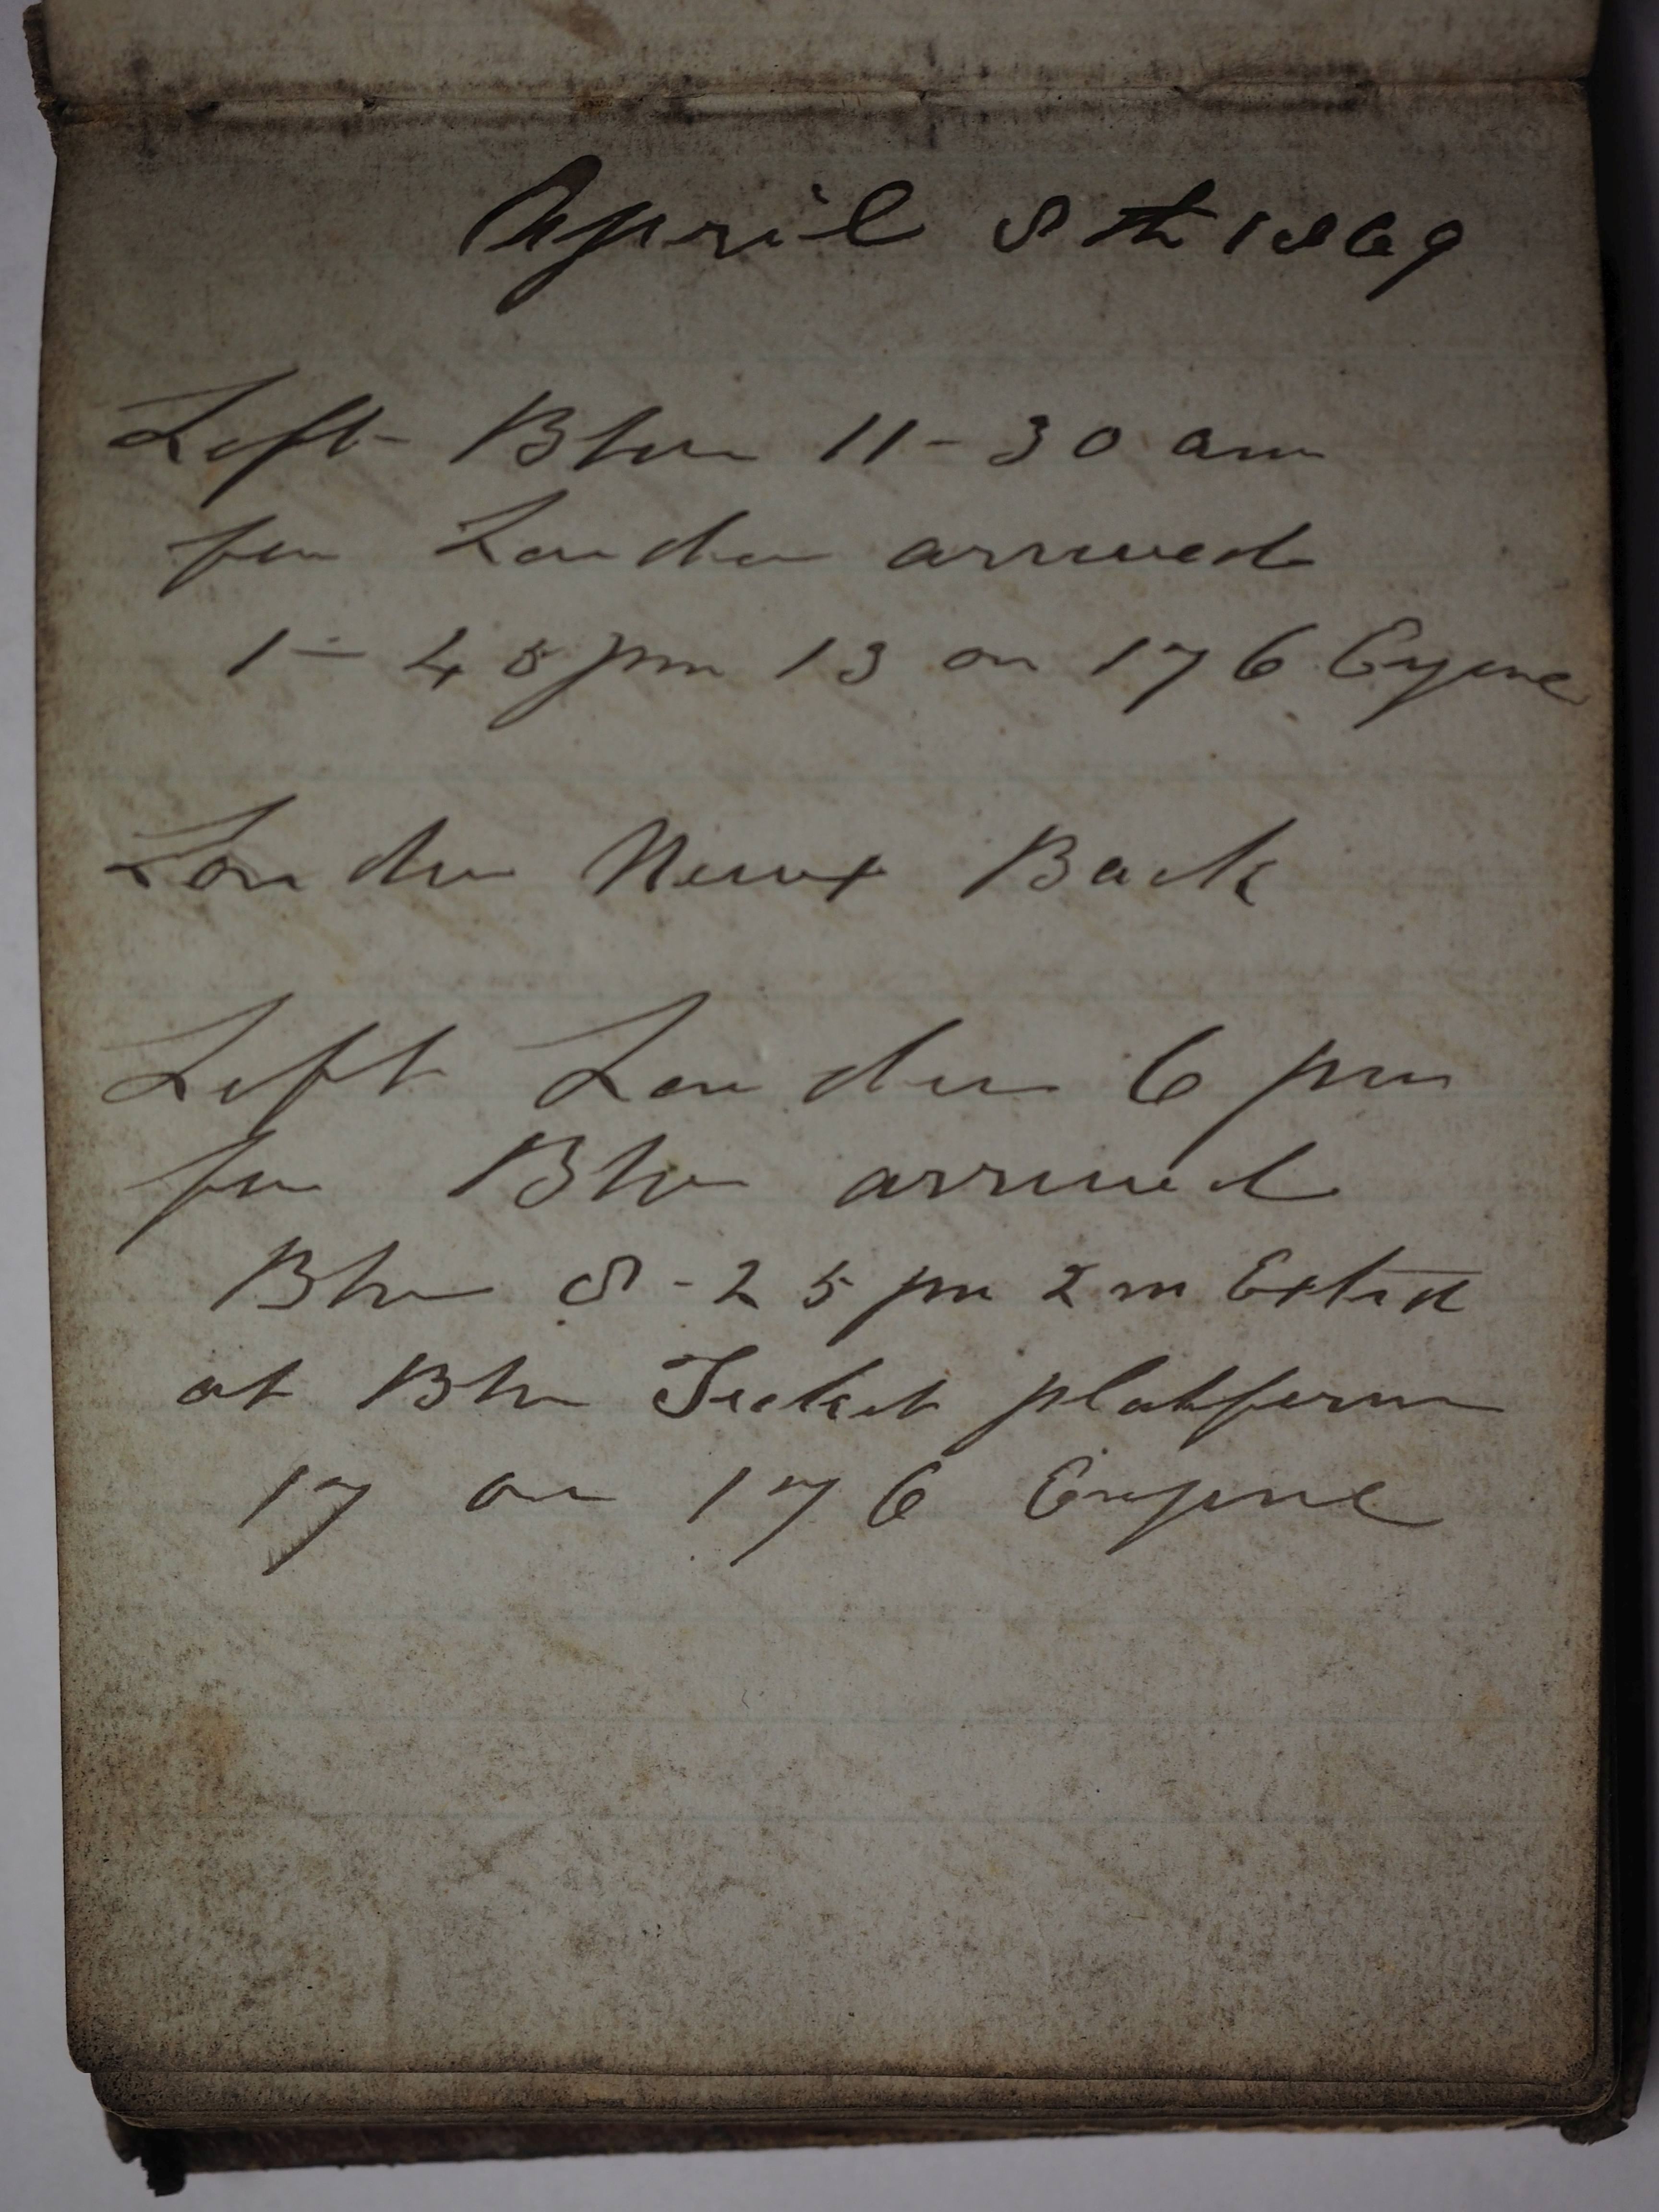 April 8th 1889
Left Bhm 11-30 am
for London arrived
1-45 pm 13 on 176 Engine
London Back
Left London 6 pm
for Bhm arrived
Bhm 8-25 pm 2 m Extra
at Bhm Ticket platform
17 on 176 Engine